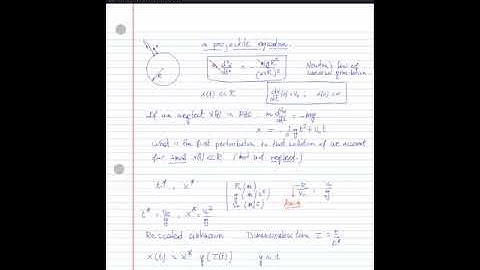 a projectile equation.
m d²x/dt² = - mgR²/(x+R)²
Newton's law of
universal gravitation.
x(t) << R
dx/dt (0) = V₀ ; x(0) = 0
If we neglect x(t) in RHS: m d²x/dt² = -mg
x = -½ g t² + V₀t
What is the first perturbation to that solution if we account
for small x(t) << R (but not neglect.)
t* , x*
R (m)
g (m/s²)
V₀ (m/s)
t* = V₀/g , x* = V₀²/g
Rescaled unknown Dimensionless time τ = t/t*
x(t) = x* y(τ(t)) y ~ 1